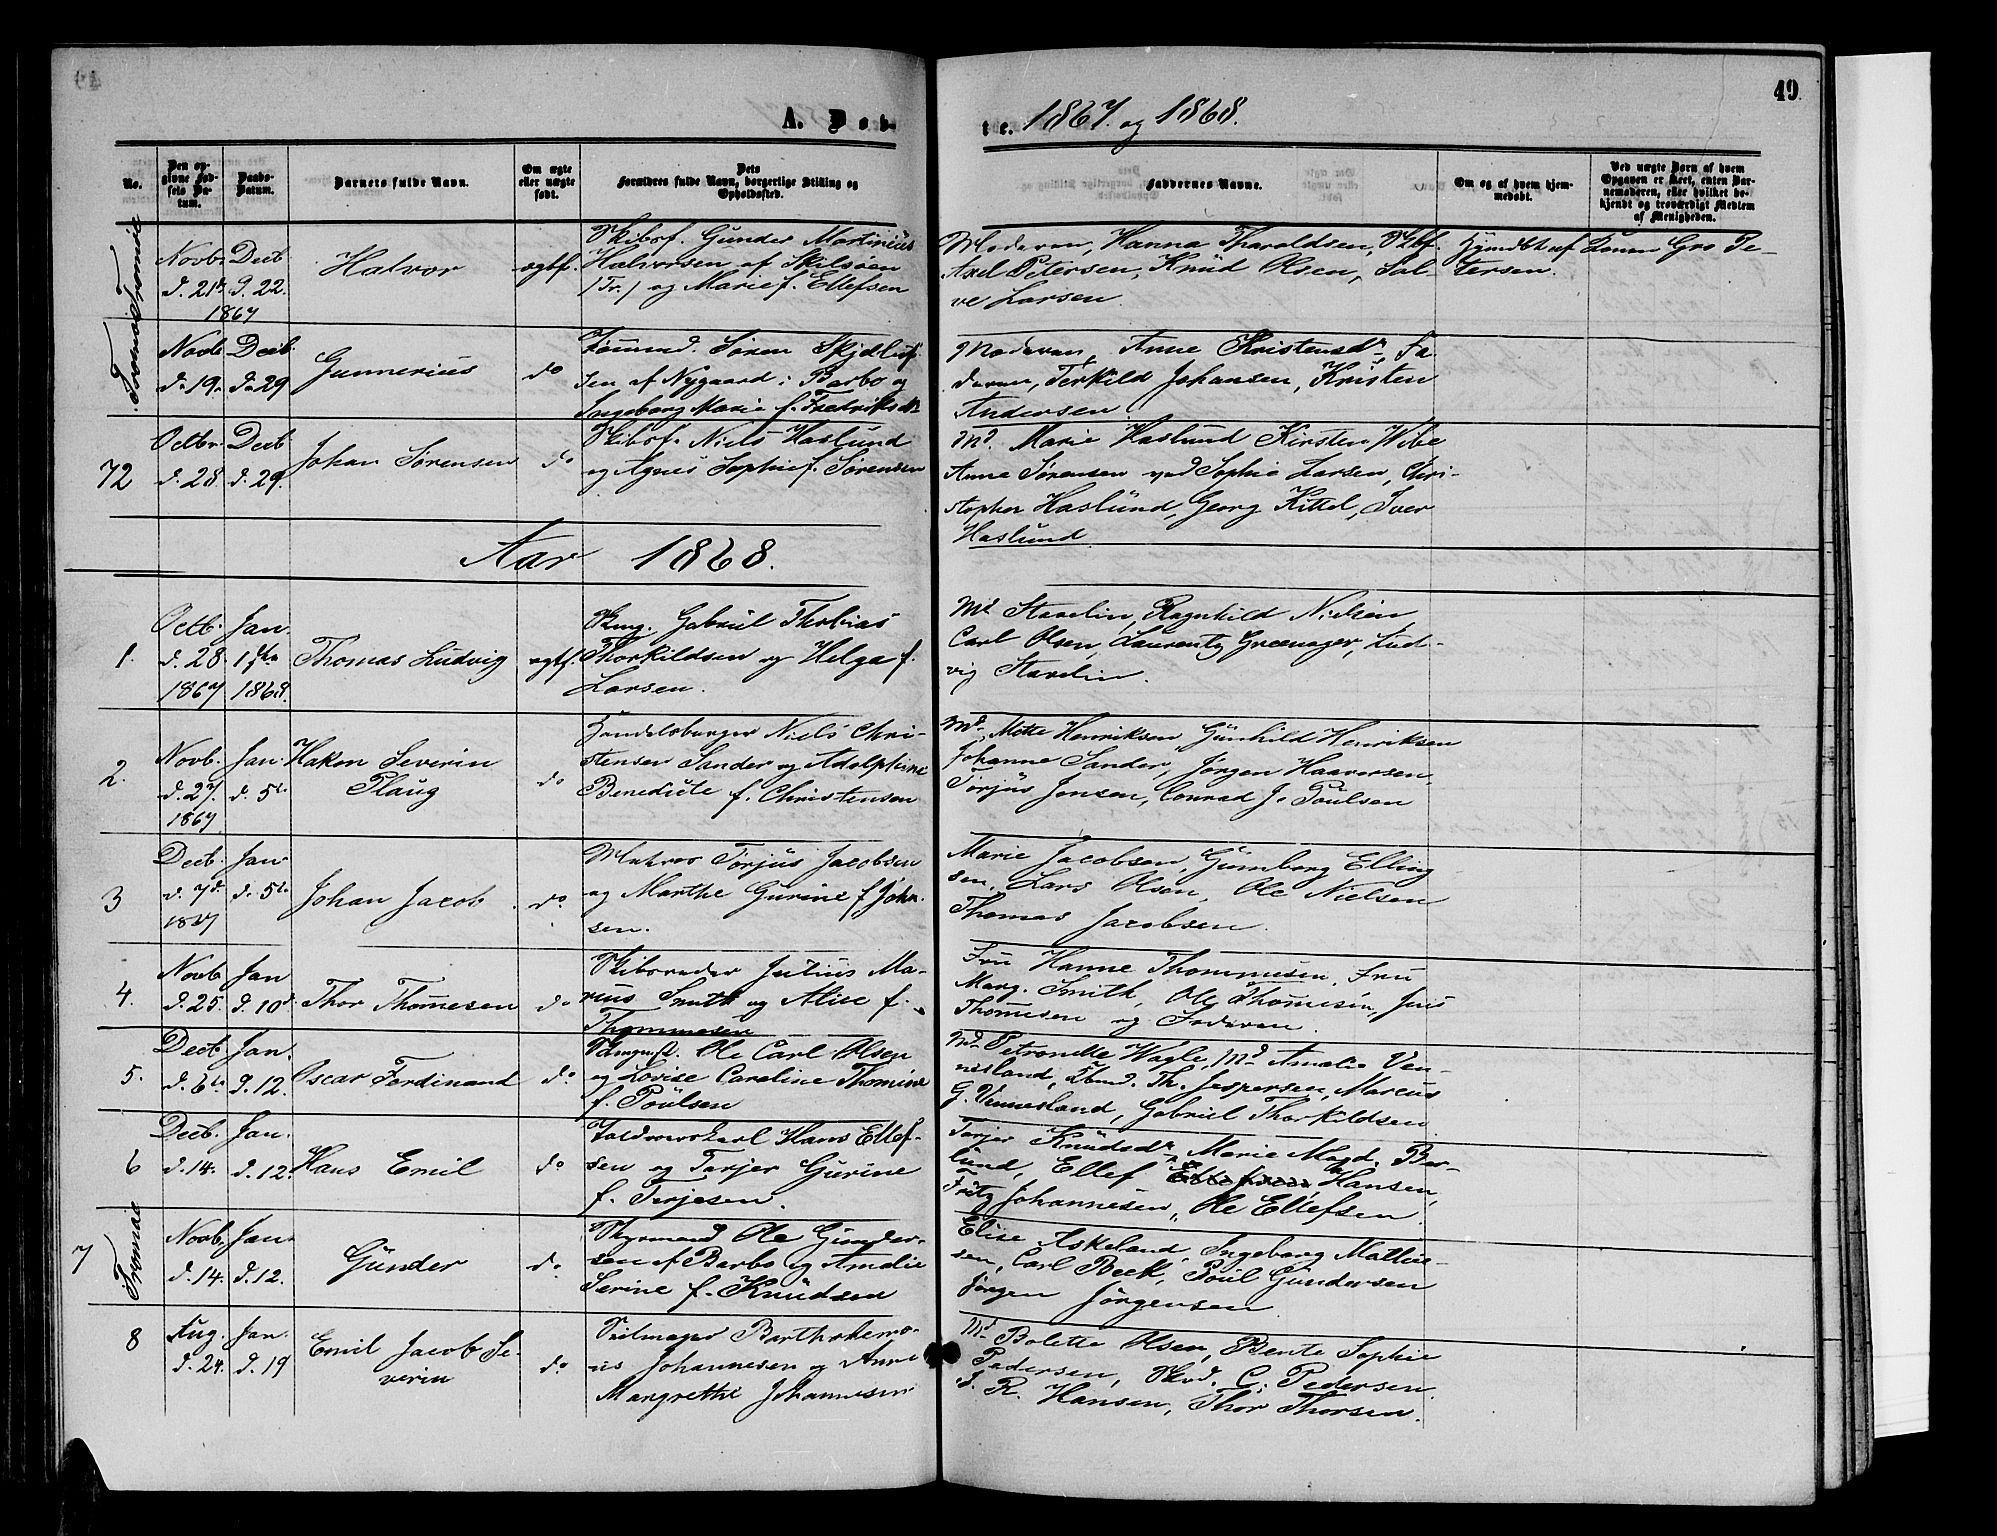 49
A. Døb-
te. 1867. og 1868.
No.
Den op-
givne Fød-
sels Da-
tum.
Daabs-
Datum.
Barnets fulde Navn.
Om ægte
eller uægte
født.
Dets
Forældres fulde Navn, borgerlige Stilling og
Opholdssted.
Faddernes Navne.
Om og af hvem hjem-
medøbt.
Ved uægte Børn af hvem
Opgaven er skeet, enten Bar-
nemoderen, eller hvilket be-
kjendt og troværdigt Medlem
af Menigheden.
Tromøe
Novb. Decb
d. 21de d. 22.
1867
Halvor
ægtf.
Skibsf. Gunder Martinius
Halvorsen af Skilsøen
/Tr./ og Marie f. Ellefsen
Moderen, Hanna Tharaldsen, Skbf.
Axel Petersen, Knud Olsen, Sal-
ve Larsen.
Hjmdbt af Konen Gro Pe-
tersen.
Tromøe
Novb Decb.
d. 19. d. 29
Gunnerius
do
Tømmd. Søren Skjellef-
sen af Nygaard i Barbo og
Ingeborg Marie f. Fredriksdtr
Moderen, Anne Kristensdtr, Fa
deren, Terkild Johansen, Kristen
Andersen
72
Octbr Decb
d. 28. d. 29.
Johan Sørensen
do
Skibsf. Niels Haslund
og Agnes Sophie f. Sørensen
Md. Marie Haslund Kirsten Wibe
Anna Sørensen ved Sophie Larsen, Chri-
stopher Haslund, Georg Kittel, Iver
Haslund
Aar 1868.
1.
Octb. Jan.
d. 28. 1ste
1867 1868.
Thomas Ludvig
ægtf.
Skmg. Gabriel Thobias
Thorkildsen og Helga f.
Larsen.
Md Stavelin, Ragnhild Nielsen
Carl Olsen, Laurentz Grewager, Lud-
vig Stavelin.
2.
Novb. Jan.
d. 27. d. 5te
1867
Hakon Severin
Plaug
do
Handelsborger Niels Chri-
stensen Sander og Adolphine
Benedicte f. Christensen
Md. Mette Henriksen, Gunhild Henriksen
Johanne Sander, Jørgen Haaversen,
Torjus Jensen, Conrad J. Poulsen
3
Decb. Jan
d. 7de d. 5te
1867
Johan Jacob
do.
Matros Torjus Jacobsen
og Marthe Gurine f. Johan-
sen.
Marie Jacobsen, Gunborg Elling
sen, Lars Olsen, Ole Nielsen
Thomas Jacobsen
4.
Novb Jan
d. 25. d. 10de
Thor Thom̄esen
do
Skibsreder Julius Ma-
rius Smith og Alise f.
Thommesen
Fru Hanne Thommesen, Fru
Marg. Smith, Ole Thom̄esen, Jens
Thom̄esen og Faderen.
5.
Decb Jan.
d. 6te d. 12.
Oscar Ferdinand
do.
Ole Carl Olsen
og Lovise Caroline Thomine
f. Poulsen
Md. Petronelle Wagle, Md Amalie Ven-
nesland, Th. Jespersen, Marcus
G. Vennesland, Gabriel Thorkildsen
6
Decb. Jan.
d. 14. d. 12.
Hans Emil
do
Hans Ellef-
sen og Torjer Gurine
f. Terjesen.
Torjer Knudsdtr, Marie Magd. Ber-
lund, Ellef Hansen,
Fritz Johannesen, Ole Ellefsen.
7
Tromøe
Novb. Jan.
d. 14. d. 12.
Gunder
do.
Styrmand Ole Gunder-
sen af Barbo og Amalie
Serine f. Knudsen
Elise Askeland, Ingeborg Mathie-
sen, Carl Beck, Poul Gundersen
Jørgen Jørgensen
8
Aug. Jan.
d. 24. d. 19
Emil Jacob Se-
verin
do.
Seilmager Bartholemæ-
us Johannesen og Anne
Margrethe Johannesen
Md. Bolette Olsen, Bente Sophie
Pedersen, C. Pedersen.
R. Hansen, Thor Thorsen.